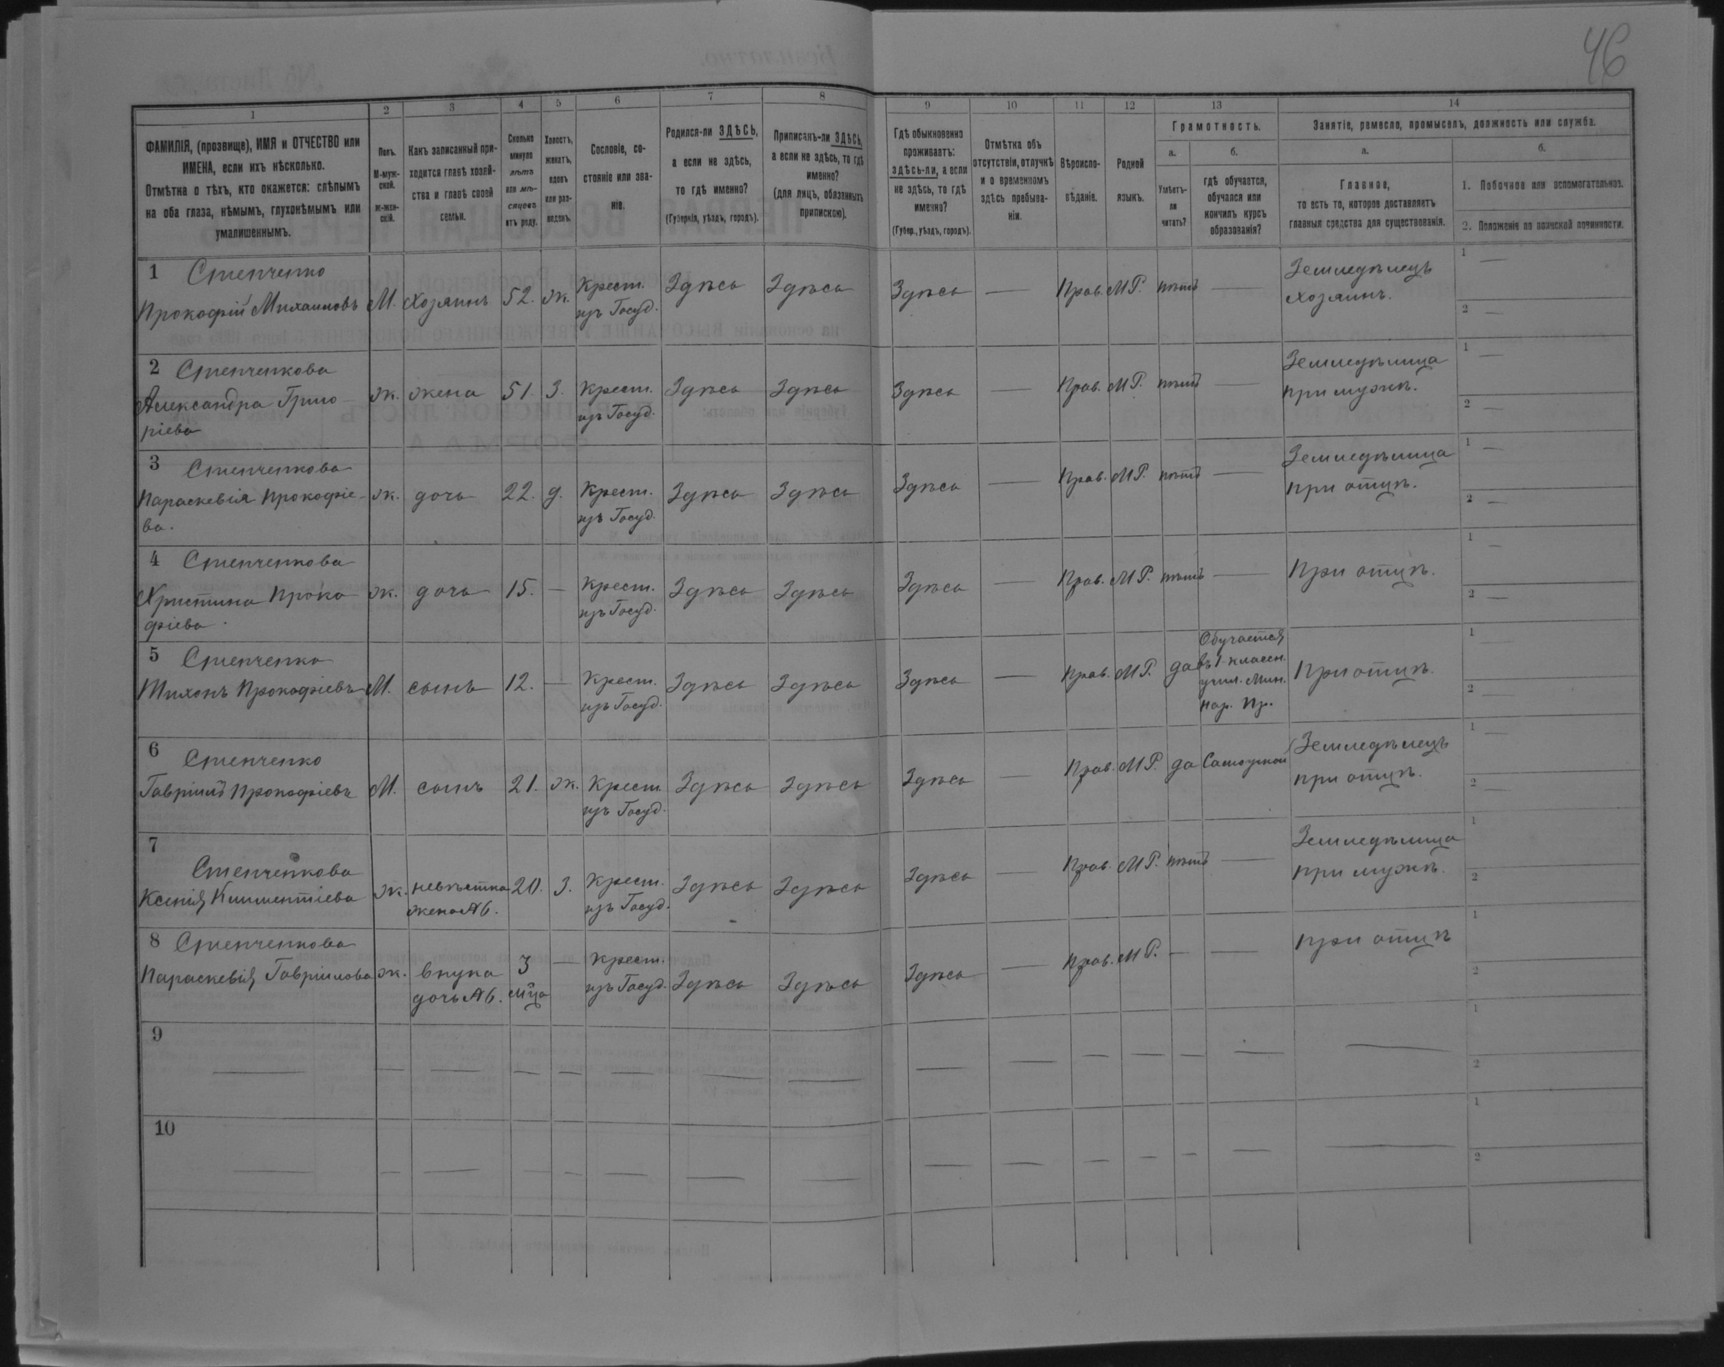 46
1 2 3 4 5 6 7 8 9 10 11 12 13 14
ФАМИЛІЯ, (прозвище), ИМЯ и ОТЧЕСТВО или
ИМЕНА, если ихъ нѣсколько.
Отмѣтка о тѣхъ, кто окажется: слѣпымъ
на оба глаза, нѣмымъ, глухонѣмымъ или
умалишеннымъ.
Полъ.
М-муж-
ской.
ж-жен-
скій.
Какъ записанный при-
ходится главѣ хозяй-
ства и главѣ своей
семьи.
Сколько
минуло
лѣтъ
или мѣ-
сяцевъ
отъ роду.
Холостъ,
женатъ,
вдовъ
или раз-
веденъ.
Сословіе, со-
стояніе или зва-
ніе.
Родился-ли ЗДѢСЬ,
а если не здѣсь,
то гдѣ именно?
(Губернія, уѣздъ, городъ).
Приписанъ-ли ЗДѢСЬ,
а если не здѣсь, то гдѣ
именно?
(для лицъ, обязанныхъ
припискою).
Гдѣ обыкновенно
проживаетъ:
здѣсь-ли, а если
не здѣсь, то гдѣ
именно?
(Губер., уѣздъ, городъ).
Отмѣтка объ
отсутствіи, отлучкѣ
и о временномъ
здѣсь пребыва-
ніи.
Вѣроиспо-
вѣданіе.
Родной
языкъ.
Грамотность.
а.
Умѣетъ-
ли
читать?
б.
гдѣ обучается,
обучался или
кончилъ курсъ
образованія?
Занятіе, ремесло, промыселъ, должность или служба.
а.
Главное,
то есть то, которое доставляетъ
главныя средства для существованія.
б.
1. Побочное или вспомогательное.
2. Положеніе по воинской повинности.
1 Стенченко
Прокофій Михаиловъ М. хозяинъ 52. ж. Крест. изъ Госуд. Здѣсь Здѣсь Здѣсь — Прав. М.Р. нѣтъ — Земледѣлецъ хозяинъ. 1 — 2 —
2 Стенченкова
Александра Григо
ріева ж. жена 51. З. Крест. изъ Госуд. Здѣсь Здѣсь Здѣсь — Прав. М.Р. нѣтъ — Земледѣлица при мужѣ. 1 — 2 —
3 Стенченкова
Параскевія Прокофіе-
ва. ж. дочь 22. д. Крест. изъ Госуд. Здѣсь Здѣсь Здѣсь — Прав. М.Р. нѣтъ — Земледѣлица при отцѣ. 1 — 2 —
4 Стенченкова
Христина Проко
фіева. ж. дочь 15. — Крест. изъ Госуд. Здѣсь Здѣсь Здѣсь — Прав. М.Р. нѣтъ — При отцѣ. 1 — 2 —
5 Стенченко
Тихонъ Прокофіевъ М. сынъ 12. — Крест. изъ Госуд. Здѣсь Здѣсь Здѣсь — Прав. М.Р. да Обучается въ 1-классн. учил. Мин. нар. Пр. При отцѣ. 1 — 2 —
6 Стенченко
Гавріилъ Прокофіевъ М. сынъ 21. ж. Крест. изъ Госуд. Здѣсь Здѣсь Здѣсь — Прав. М.Р. да Самоучкой Земледѣлецъ при отцѣ. 1 — 2 —
7 Стенченкова
Ксенія Климентіева ж. невѣстка жена №6. 20. З. Крест. изъ Госуд. Здѣсь Здѣсь Здѣсь — Прав. М.Р. нѣтъ — Земледѣлица при мужѣ. 1 2
8 Стенченкова
Параскевія Гавріилова ж. внука дочь №6. 3 м-ца — Крест. изъ Госуд. Здѣсь Здѣсь Здѣсь — Прав. М.Р. — — при отцѣ 1 2
9 — — — — — — — — — — — — — — — 1 2
10 — — — — — — — — — — — — — — 1 2